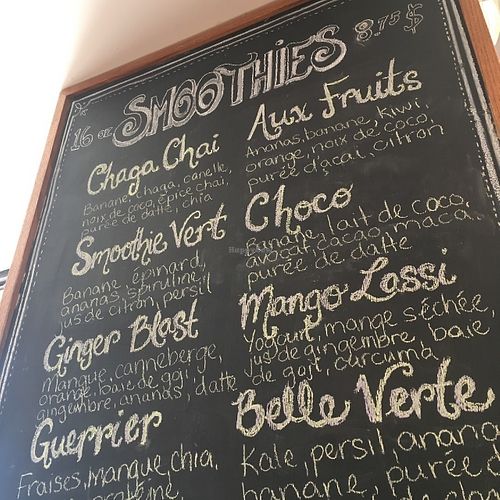 16 oz SMOOTHIES 8.75$
Chaga Chai
Banane, chaga, canelle,
noix de coco, épice chai,
purée de datte, chia
Smoothie Vert
Banane, épinard,
ananas, spiruline,
jus de citron, persil
Ginger Blast
Mangue, canneberge,
orange, baie de goji,
gingembre, ananas, datte
Guerrier
Fraises, mangue, chia,
Aux Fruits
Ananas, banane, kiwi,
orange, noix de coco,
purée d'açai, citron
Choco
Banane, lait de coco,
avocat, cacao, maca,
purée de datte
Mango Lassi
Yogourt, mange séchée,
jus de gingembre, baie
de goji, curcuma
Belle Verte
Kale, persil, anana
banane, purée